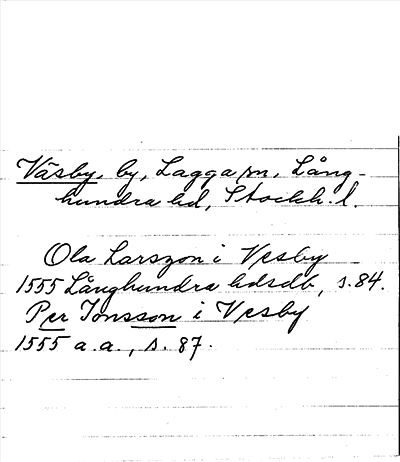 Väsby, by, Lagga sn, Lång-
hundra hd, Stockh. l.
Ola Larszon i Vesby
1555 Långhundra hdsdb, s. 84.
Per Jonsson i Vesby
1555 a.a., s. 87.